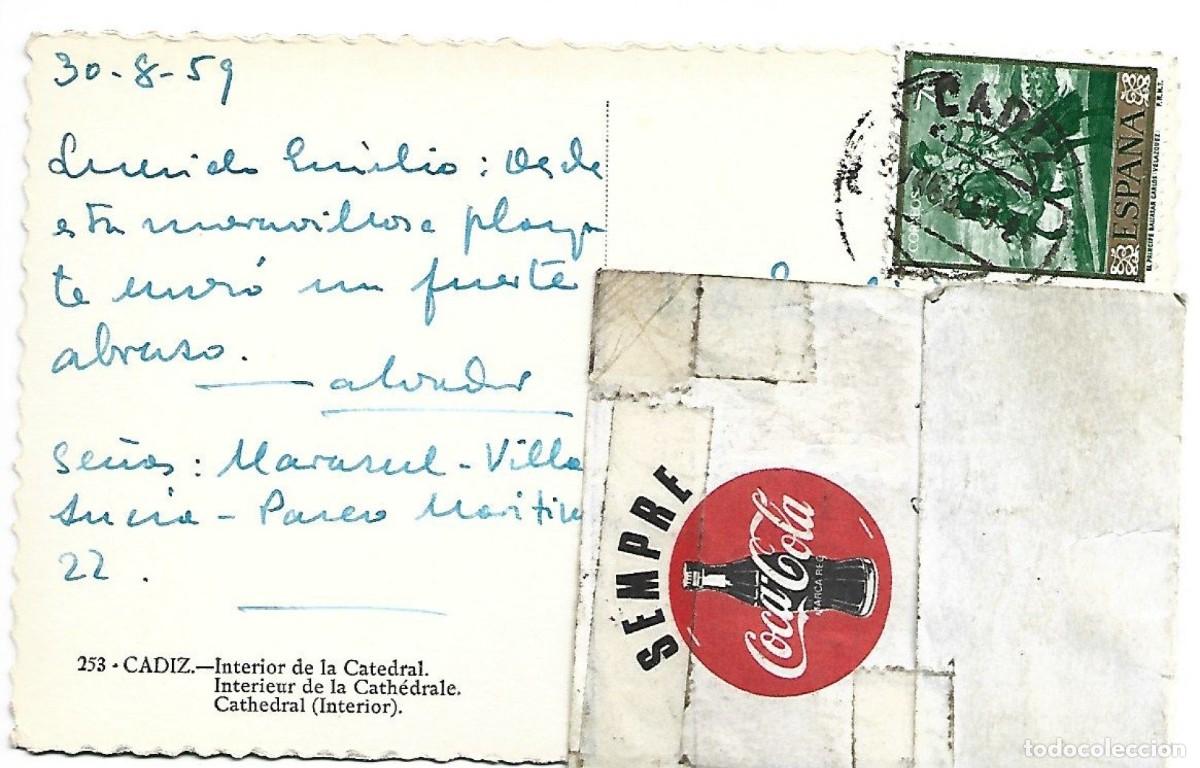 30-8-59
Querido Emilio: Desde
esta maravillosa playa
te envió un fuerte
abraso.
Salvador
Señas: Marasul - Villa
Lucia - Paseo Maritimo
22.
253 - CADIZ.—Interior de la Catedral.
Interieur de la Cathédrale.
Cathedral (Interior).
CADIZ
CORREOS
ESPAÑA
EL PRINCIPE BALTASAR CARLOS (VELAZQUEZ)
F.N.M.T.
SEMPRE
Coca-Cola
MARCA REG
todocoleccion